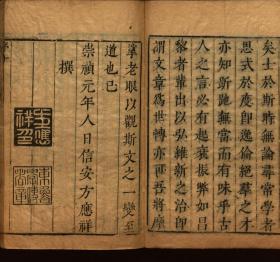 矣士於斯時無論尋常學者
思式於度即逸倫絕群者
亦知斯馳無當而有味乎古
人之言必有起衰振弊如昌
黎者輩出以弘維新之治勿
謂文章為世轉亦
吾將
老眼以觀斯文之一變至
道也已
崇禎元年人日信安方應祥
撰
方應
祥印